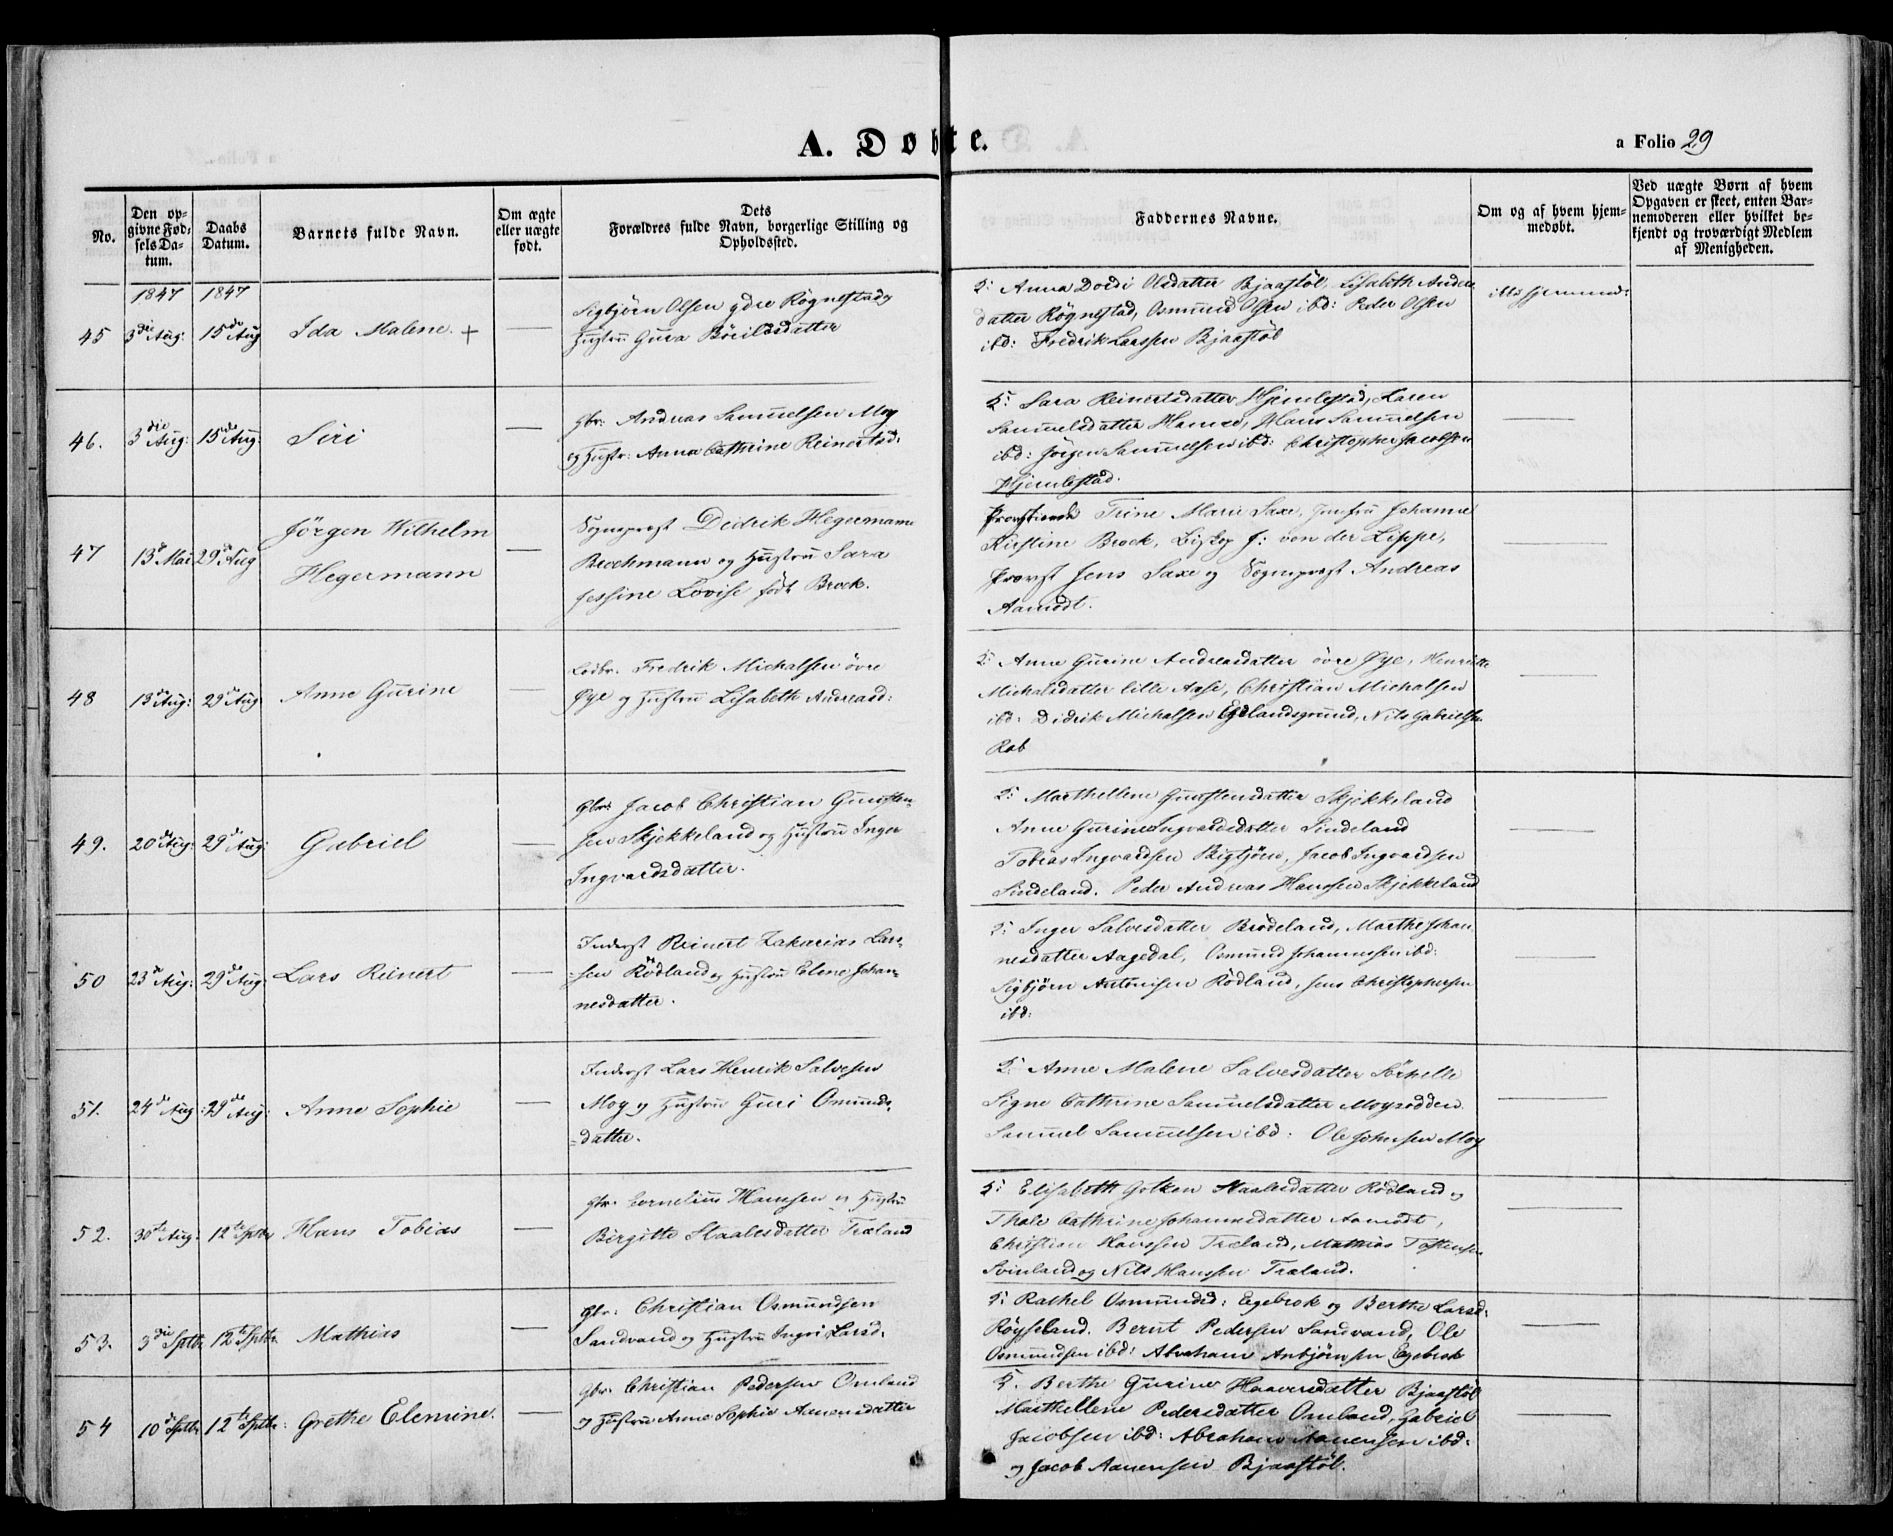 A. Døbte.
a Folio 29
No.
Den op-
givne Fød-
sels Da-
tum.
Daabs
Datum.
Barnets fulde Navn.
Om ægte
eller uægte
født.
Dets
Forældres fulde Navn, borgerlige Stilling og
Opholdssted.
Faddernes Navne.
Om og af hvem hjem-
medøbt.
Ved uægte Børn af hvem
Opgaven er skeet, enten Bar-
nemoderen eller hvilket be-
kjendt og troværdigt Medlem
af Menigheden.
1847 1847
45 3die Aug: 15de Aug Ida Malene + —
Sigbjörn Olsen ydre Rögnestad og
Hustru Gura Böeilds datter
2: Anna Dordi Olsdatter Bjaastöl, Lisabeth Anders
datter Rögnestad, Osmund Olsen ibd: Peder Olsen
ibd: Fredrik Larssen Bjaastöl
46. 3die Aug: 15de Aug: Siri —
Gbr: Andreas Samuelsen Moy
og Hustr: Anna Cathrine Reinertsd:
2: Sara Reinertsdatter Hjemlestad, Karen
Samuelsdatter Hamre, Hans Samuelsen
ibd: Jörgen Samuelsen ibd: Christopher Jacobsen
Hjemlestad. —
47 13de Mai 29de Aug Jörgen Wilhelm
Hegermann —
Sognepræst Didrik Hegermann
Brochmann og Hustru Sara
Jessine Lovise født Brock.
Provstinde Trine Marie Saxe, Jomfru Johanne
Kirstine Brock, Biskop J: von der Lippe,
Provst Jens Saxe og Sognepræst Andreas
Aamodt. —
48 13de Aug: 29de Aug Anne Gurine —
Ledbr. Fredrik Michalsen övre
Øye og Hustru Lisabeth Andreasd:
2: Anne Gurine Andreasdatter övre Øye, Henriette
Michalsdatter lille Aasi, Christian Michalsen
ibd: Didrik Michalsen Egelandsgrund, Nils Gabrielsen
Rob —
49. 20de Aug: 29de Aug: Gabriel —
Gbr: Jacob Christian Gunsten-
sen Skjekkeland og Hustru Inger
Ingvardsdatter.
2: Marthellene Gunstensdatter Skjekkeland
Anne Gurine Ingvardsdatter Sindeland
Tobias Ingvardsen Bigtjönn, Jacob Ingvardsen
Sindeland. Peder Andreas Hanssen Skjekkeland —
50 23de Aug: 29de Aug: Lars Reinert —
Inderst Reinert Zakarias Lars-
sen Rödland og Hustru Elene Johan-
nesdatter.
2: Inger Salvesdatter Brödeland, Marthe Johan
nesdatter Aagedal, Osmund Johannessen ibd:
Sigbjörn Antonisen Rödland, Jens Christophersen
ibd: —
51. 24de Aug: 29de Aug: Anne Sophie —
Inderst Lars Henrik Salvesen
Moy og Hustru Guri Osmunds-
datter.
2: Anne Malene Salvesdatter Sörhelle
Signe Cathrine Samuelsdatter Moysodden
Samuel Samuelsen ibd: Ole Johnsen Moy —
52. 30te Aug: 12te Sptbr Hans Tobias —
Gbr. Cornelius Hanssen og Hustru
Birgitte Staalesdatter Træland
2: Elisabeth Golken Staalesdatter Rödland og
Thale Cathrine Johannesdatter Aamodt,
Christian Hanssen Træland, Mathias Tostensen
Svinland og Nils Hanssen Træland. —
53. 3die Sptbr 12te Sptbr. Mathias —
Gbr: Christian Osmundsen
Sandvand og Hustru Ingri Larsd.
2: Rathel Osmundsd: Egebrok og Berthe Larsd:
Röyseland. Bernt Pedersen Sandvand, Ole
Osmundsen ibd: Abraham Anbjörnsen Egebrok —
54 10de Sptbr 12te Sptbr: Grethe Elenine. —
Gbr: Christian Pedersen Omland
og Hustru Anne Sophie Aanensdatter
2. Berthe Gurine Haaversdatter Bjaastöl
Marthellene Pedersdatter Omland, Gabriel
Jacobsen ibd: Abraham Aanensen ibd:
og Jacob Aanensen Bjaastöl. —